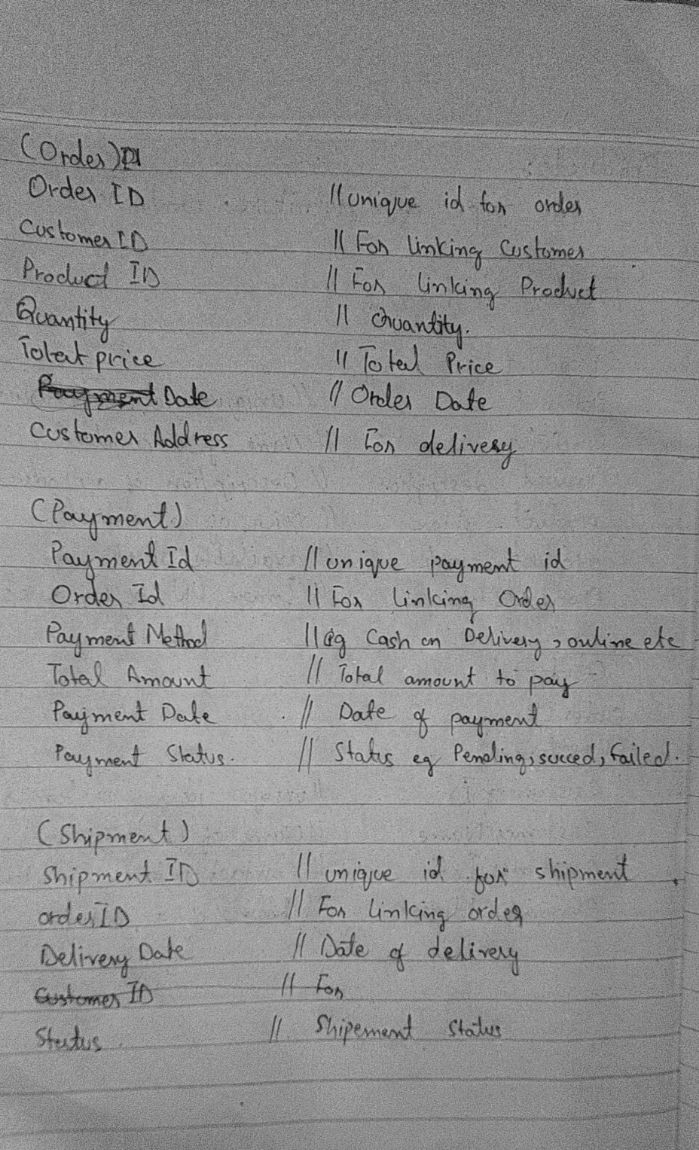 (Order)
Order ID // unique id for order
Customer ID // For linking Customer
Product ID // For linking Product
Quantity // Quantity.
Total price // Total Price
Payment Date // Order Date
Customer Address // For delivery
(Payment)
Payment Id // unique payment id
Order Id // For linking Order
Payment Method // eg Cash on Delivery, online etc
Total Amount // Total amount to pay
Payment Date // Date of payment
Payment Status. // Status eg Pending, succed, Failed.
(Shipment)
Shipment ID // unique id for shipment
order ID // For linking order
Delivery Date // Date of delivery
Customer ID // For
Status // Shipement Status